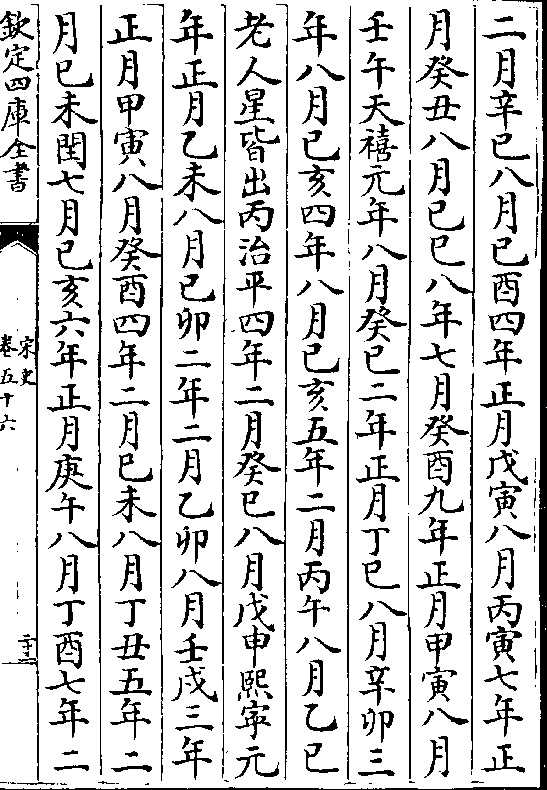 二月辛巳八月己酉四年正月戊寅八月丙寅七年正
月癸丑八月己巳八年七月癸酉九年正月甲寅八月
壬午天禧元年八月癸巳二年正月丁巳八月辛卯三
年八月己亥四年八月己亥五年二月丙午八月乙巳
老人星皆出丙治平四年二月癸巳八月戊申熙寧元
年正月乙未八月己卯二年二月乙卯八月壬戌三年
正月甲寅八月癸酉四年二月己未八月丁丑五年二
月己未閏七月己亥六年正月庚午八月丁酉七年二
欽定四庫全書
宋史
卷五十六